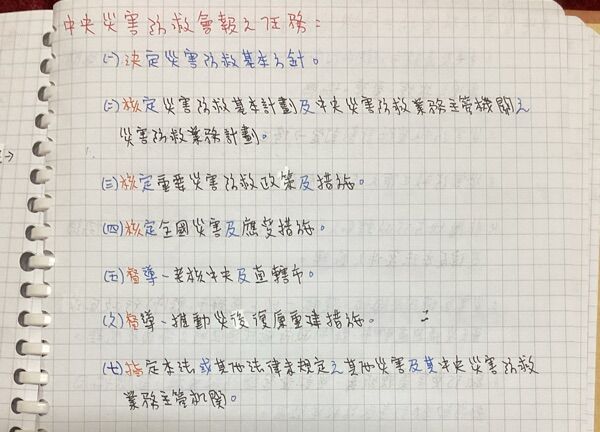 中央災害防救會報之任務：
(一)決定災害防救基本方針。
(二)核定災害防救基本計劃及中央災害防救業務主管機關之
災害防救業務計劃。
(三)核定重要災害防救政策及措施。
(四)核定全國災害及應變措施。
(五)督導、考核中央及直轄市。
(六)督導、推動災後復原重建措施。
(七)指定本法或其他法律未規定之其他災害及其中央災害防救
業務主管机關。